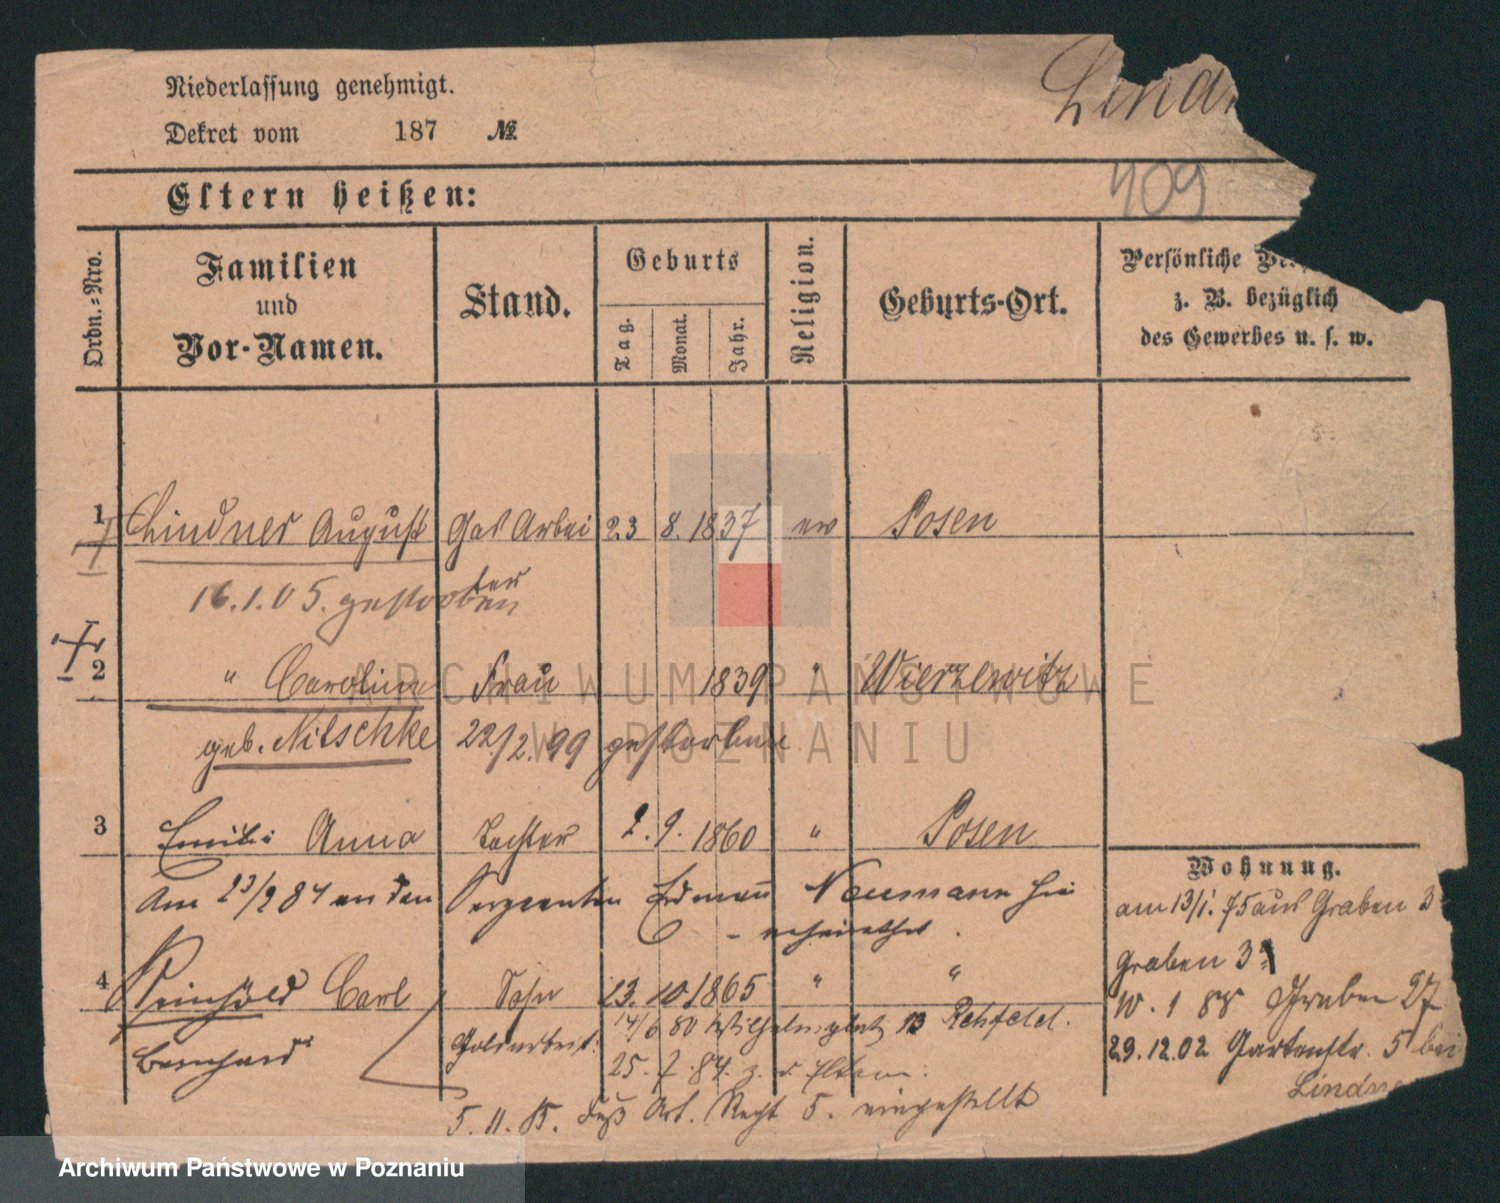 Niederlassung genehmigt.
Lind
Dekret vom 187 №
409
Eltern heißen:
Ordn.-Nro.
Familien
und
Vor-Namen.
Stand.
Geburts
Tag.
Monat.
Jahr.
Religion.
Geburts-Ort.
Persönliche
z. B. bezüglich
des Gewerbes u. s. w.
1 Lindner August Gas Arbei 23 8. 1837 ev Posen
ter
16.1.05. gestorben
2 " Caroline Frau 1839 " Wierzewitz
geb. Nitschke 22/2. 99 gestorben
3 Emilie Anna Tochter 2. 9. 1860 " Posen
Am 23/2 84 an den Sergeanten Erdmann Neumann hie
verheirathet.
Wohnung.
am 13/1. 75 aus Graben 3
Graben 3a
4 Reinhold Carl Sohn 13. 10. 1865 " "
W. 1 88 Graben 27
Bernhard Goldarbeit. 14/6 80 Wilhelmsplatz 13 Rehfeld.
29.12.02 Gartenstr. 5 bei
25. 7. 84. z. d. Eltern.
Lindne
5. 11. 85. Fuß Art. Regt 5. eingestellt
ARCHIWUM PAŃSTWOWE
W POZNANIU
Archiwum Państwowe w Poznaniu